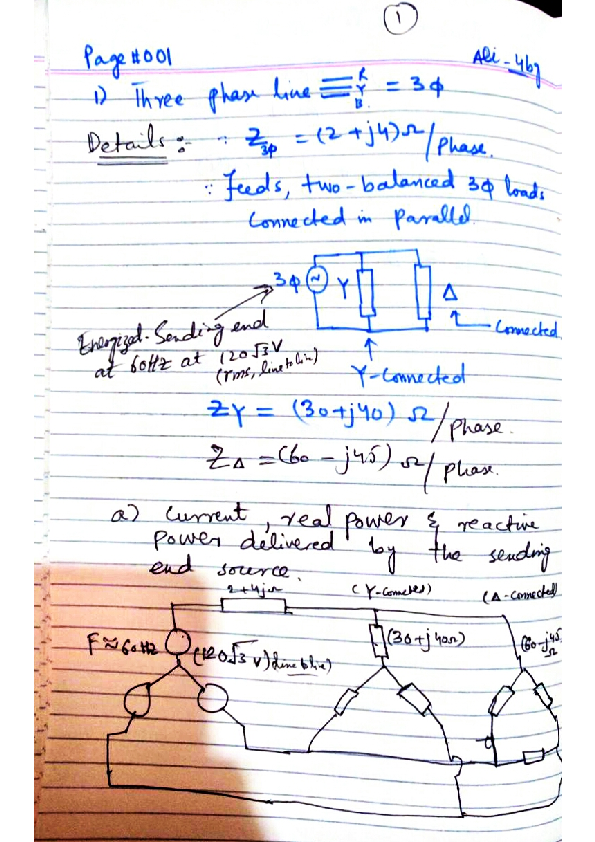 1
Page #001
Ali-4bg
1) Three phase line ≡ R Y B = 3ϕ
Details :- ∵ Z3φ = (2+j4)Ω/Phase.
∵ Feeds, two-balanced 3ϕ loads
Connected in Parallel.
3ϕ ~ Y Δ
Connected
Energized. Sending end
at 60Hz at 120√3 V
(rms, line to line)
Y-Connected
ZY = (30+j40) Ω/Phase.
ZΔ = (60-j45) Ω/Phase.
a) Current, real power & reactive
power delivered by the sending
end source.
2+4jΩ
(Y-Connected)
(Δ-Connected)
F≈60Hz
(120√3 V) line to line)
(30+j40Ω)
(60-j45
Ω